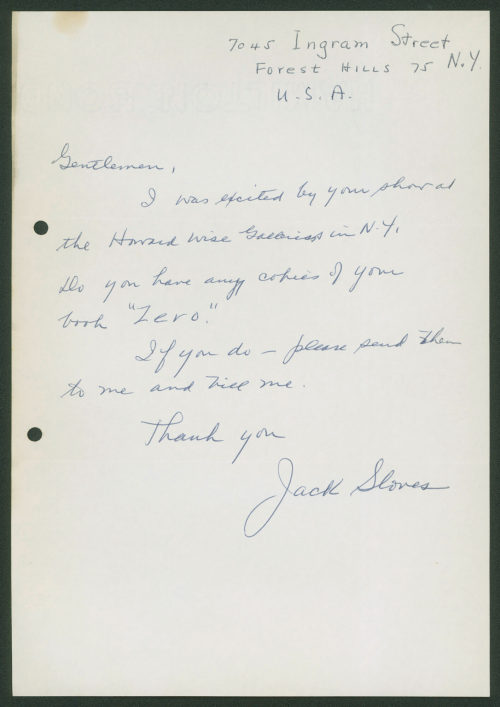 7045 Ingram Street
Forest Hills 75 N.Y.
U.S.A.
Gentlemen,
I was excited by your show at
the Howard Wise Galleries in N.Y.
Do you have any copies of your
book "Zero".
If you do – please send them
to me and bill me.
Thank you
Jack Sloves